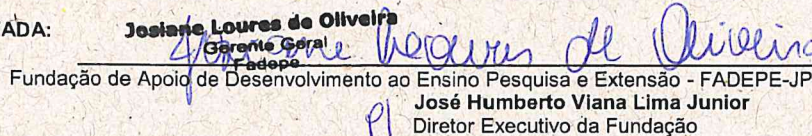 ADA:
Josiane Loures de Oliveira
Gerente Geral
Fadepe
Josiane Loures de Oliveira
Fundação de Apoio de Desenvolvimento ao Ensino Pesquisa e Extensão - FADEPE-JF
José Humberto Viana Lima Junior
P/ Diretor Executivo da Fundação